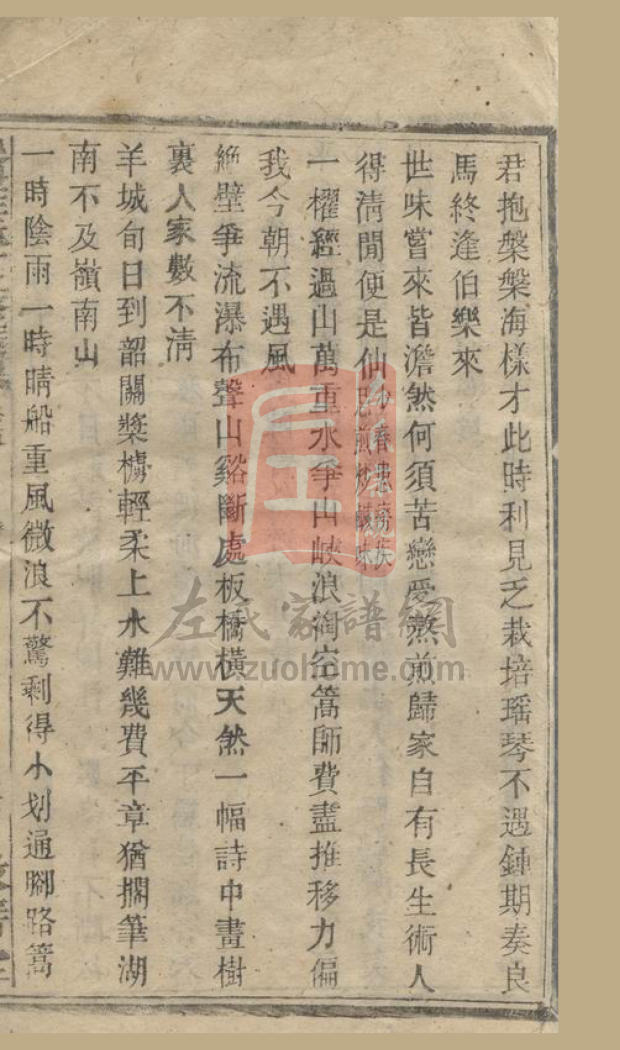 君抱槃槃海樣才此時利見乏栽培瑶琴不遇鍾期奏良
馬終逢伯樂來
世味嘗來皆澹然何須苦戀愛熬煎歸家自有長生術人
得淸閒便是仙
思煎炒鹹味
一櫂經過山萬重水爭山峽浪淘空篙師費盡推移力偏
我今朝不遇風
絶壁爭流瀑布聲山谿斷處板橋橫天然一幅詩中畫樹
裏人家數不淸
羊城旬日到韶關槳櫓輕柔上水難幾費平章猶擱筆湖
南不及嶺南山
一時陰雨一時晴船重風微浪不驚剩得小划通腳路篙
左氏家譜網
www.zuohome.com